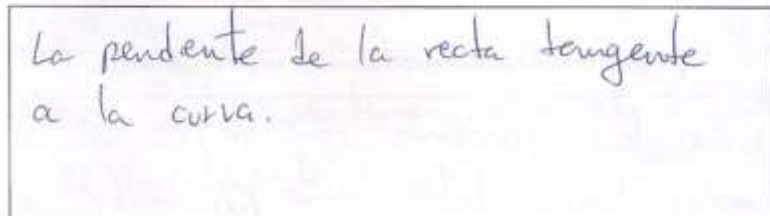 La pendente de la recta tangente
a la curva.